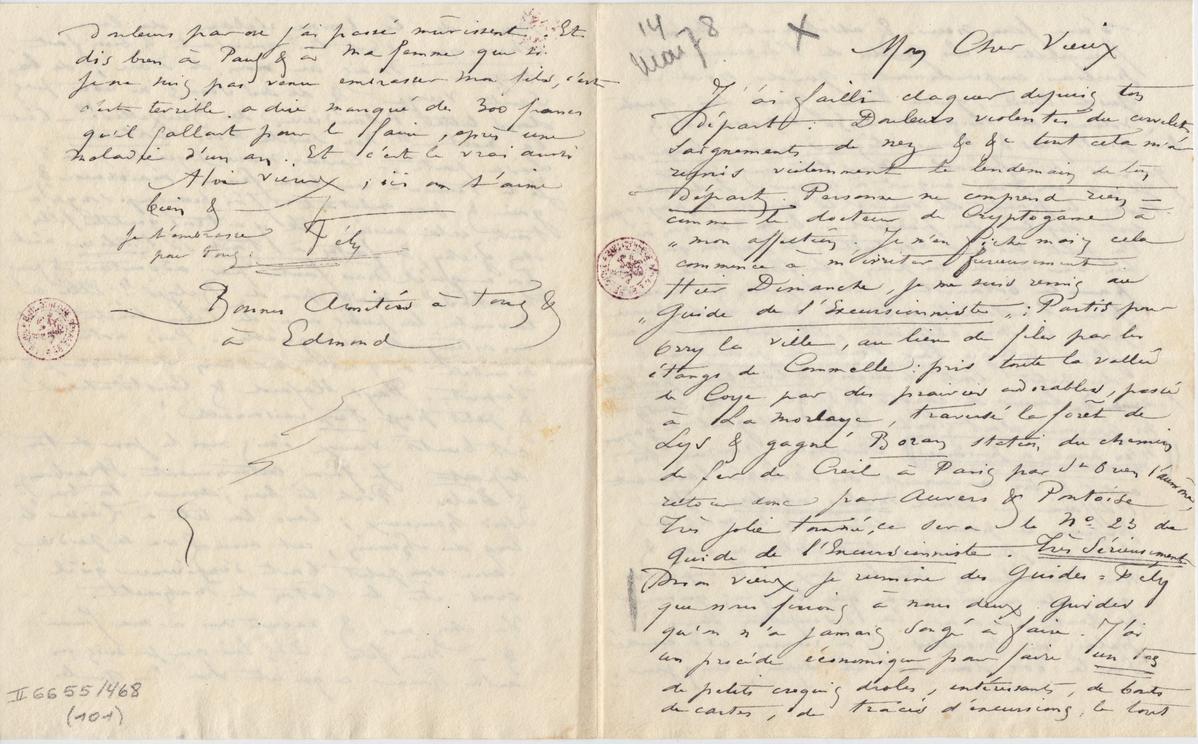 douleurs par où j'ai passé mûrissent. Et
dis bien à Paul & à ma femme que si
je ne suis pas venu embrasser ma fille, c'est
c'est terrible à dire manque de 300 francs
qu'il fallait pour le faire, après une
maladie d'un an. Et c'est le vrai aussi
vieux, ici on t'aime
bien &
je t'embrasse
pour tous.
Fély
Bonnes Amitiés à tous &
à Edmond
II 6655/468
(101)
14
Mai 78
X
Mon Cher Vieux
J'ai failli claquer depuis ton
Départ. Douleurs violentes du cervelet
saignements de nez &c &c tout cela m'a
repris violemment le lendemain de ton
Départ. Personne ne comprend rien =
comme le docteur de Cryptogame à
„ mon affection. Je m'en fiche mais cela
commence à m'irriter furieusement
Hier Dimanche, je me suis remis au
„ Guide de l'Excursionniste „ : Partis pour
Orry la ville, au lieu de filer par les
étangs de Commelle : pris toute la vallée
de Coye par des prairies adorables, passé
à La morlaye, traversé la forêt de
Lys & gagné Boran station du chemin
de fer de Creil à Paris par St Ouen l'aumône,
retour donc par Auvers & Pontoise
Très jolie tournée, ce sera le No 23 du
Guide de l'Excursionniste. Très Sérieusement
mon vieux je rumine des Guides = Fély
que nous ferions à nous deux. Guides
qu'on n'a jamais songé à faire. J'ai
un procédé économique pour faire un tas
de petits croquis drôles, intéressants, de bouts
de cartes, de tracés d'excursions, le tout